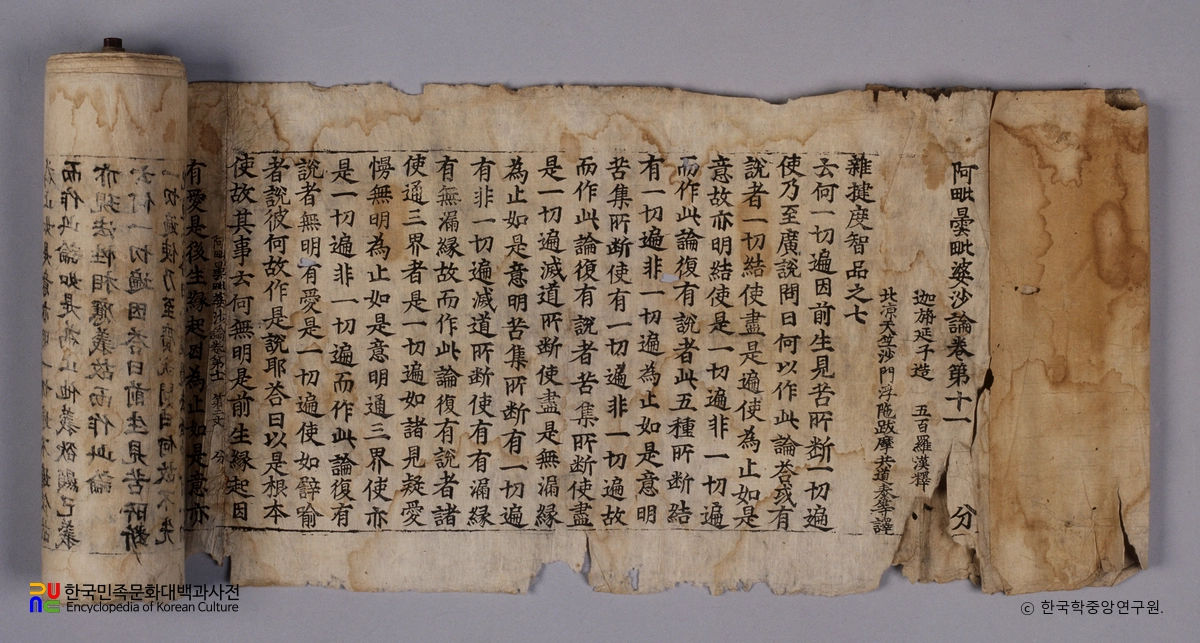 阿毗曇毗婆沙論卷第十一　分
迦旃延子造　五百羅漢釋
北涼天竺沙門浮陁跋摩共道泰等譯
雜揵度智品之七
云何一切遍因前生見苦所斷一切遍
使乃至廣說問曰何以作此論荅或有
說者一切結使盡是遍使為止如是
意故亦明結使是一切遍非一切遍
而作此論復有說者此五種所斷結
有一切遍非一切遍為止如是意明
苦集所斷使有一切遍非一切遍故
而作此論復有說者苦集所斷使盡
是一切遍滅道所斷使盡是無漏緣
為止如是意明苦集所斷有一切遍
有非一切遍滅道所斷使有有漏緣
有無漏緣故而作此論復有說者諸
使通三界者是一切遍如諸見疑愛
慢無明為止如是意明通三界使亦
是一切遍非一切遍而作此論復有
說者無明有愛是一切遍使如譬喻
者說彼何故作是說耶荅曰以是根本
使故其事云何無明是前生緣起因
有愛是後生緣起因為止如是意亦
한국민족문화대백과사전
Encyclopedia of Korean Culture
© 한국학중앙연구원.